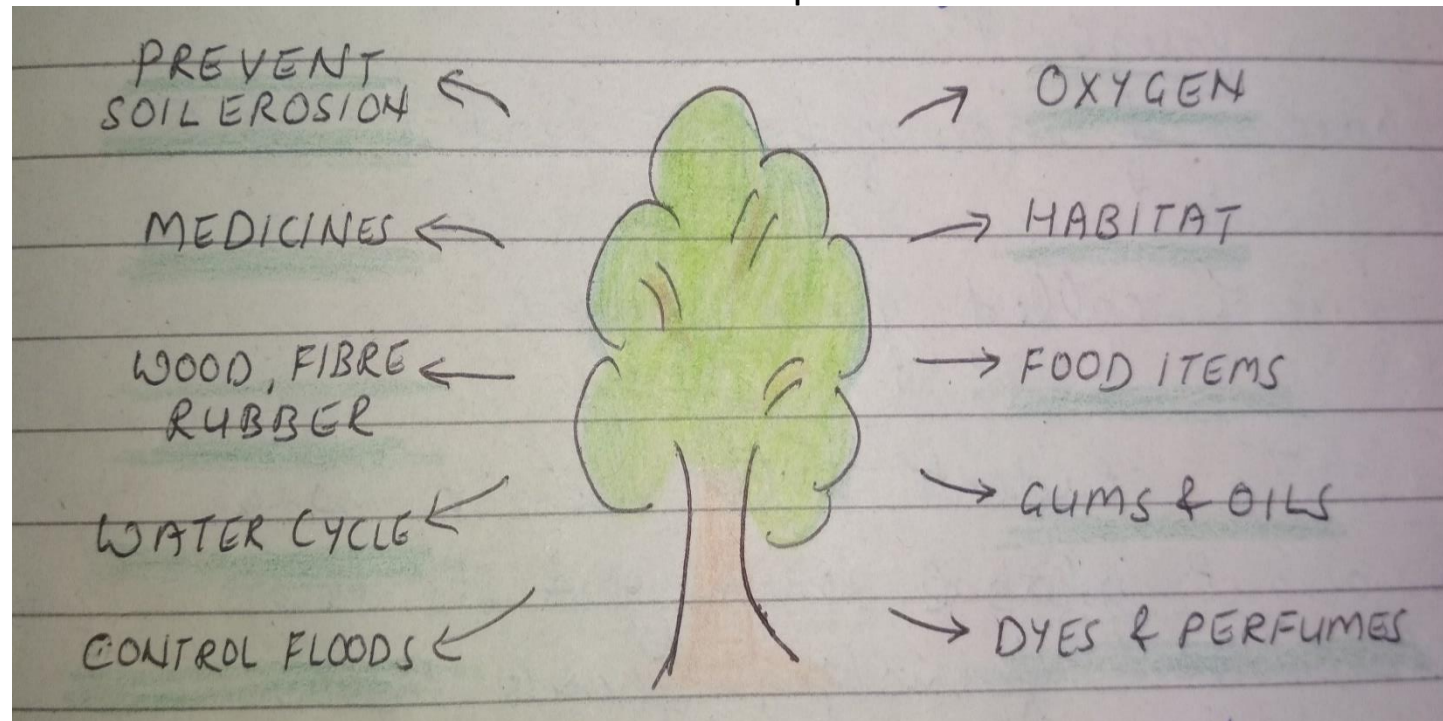 PREVENT
SOIL EROSION
MEDICINES
WOOD, FIBRE
RUBBER
WATER CYCLE
CONTROL FLOODS
OXYGEN
HABITAT
FOOD ITEMS
GUMS & OILS
DYES & PERFUMES